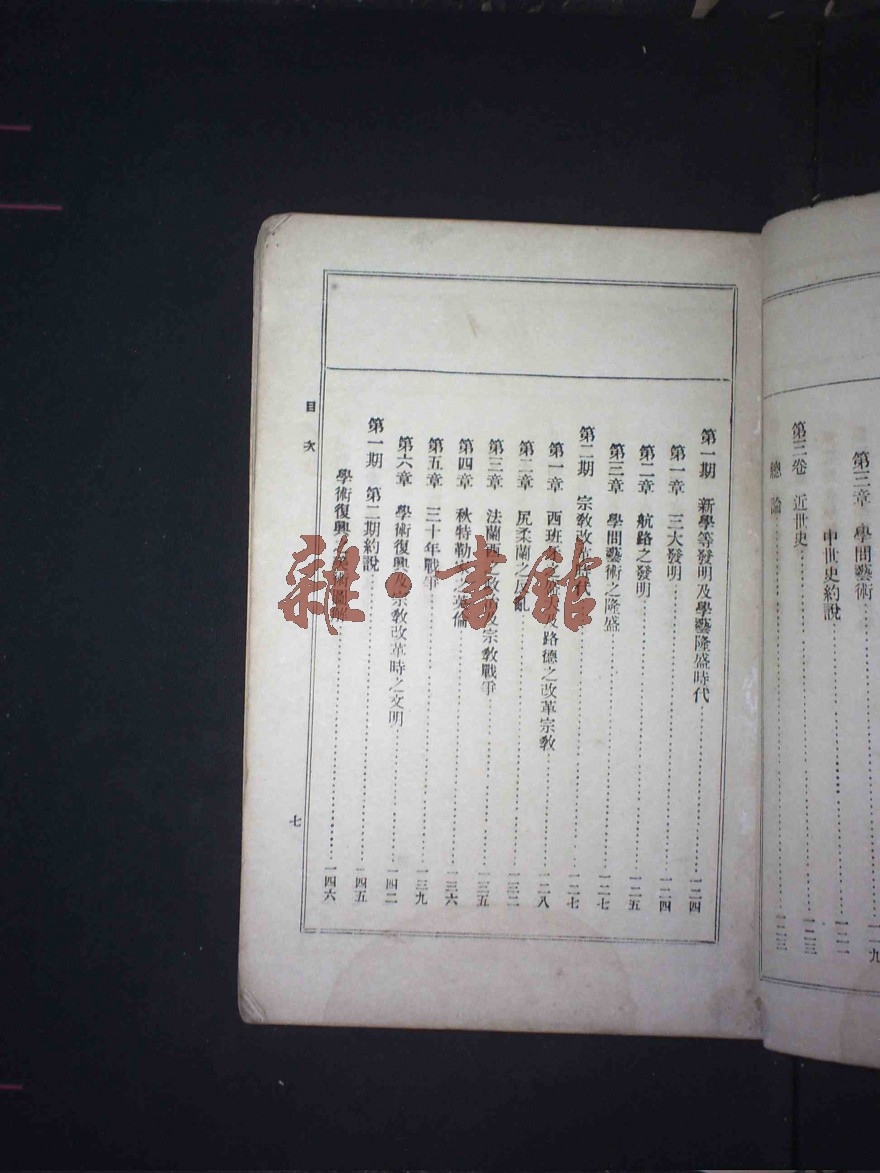 第三章 學問藝術……一一九
中世史約說……一二二
第三卷 近世史……一二三
總論……一二三
第一期 新學等發明及學藝隆盛時代……一二四
第一章 三大發明……一二四
第二章 航路之發明……一二五
第三章 學問藝術之隆盛……一二七
第二期 宗教改革時代……一二七
第一章 西班牙 及路德之改革宗教……一二八
第二章 尻柔蘭之反亂……一三二
第三章 法蘭西之政 及宗教戰爭……一三五
第四章 秋特勒 之英倫……一三六
第五章 三十年戰爭……一三九
第六章 學術復興及宗教改革時之文明……一四二
第一期 第二期約說……一四五
學術復興之美術圖解……一四六
目次
七
雜·書館